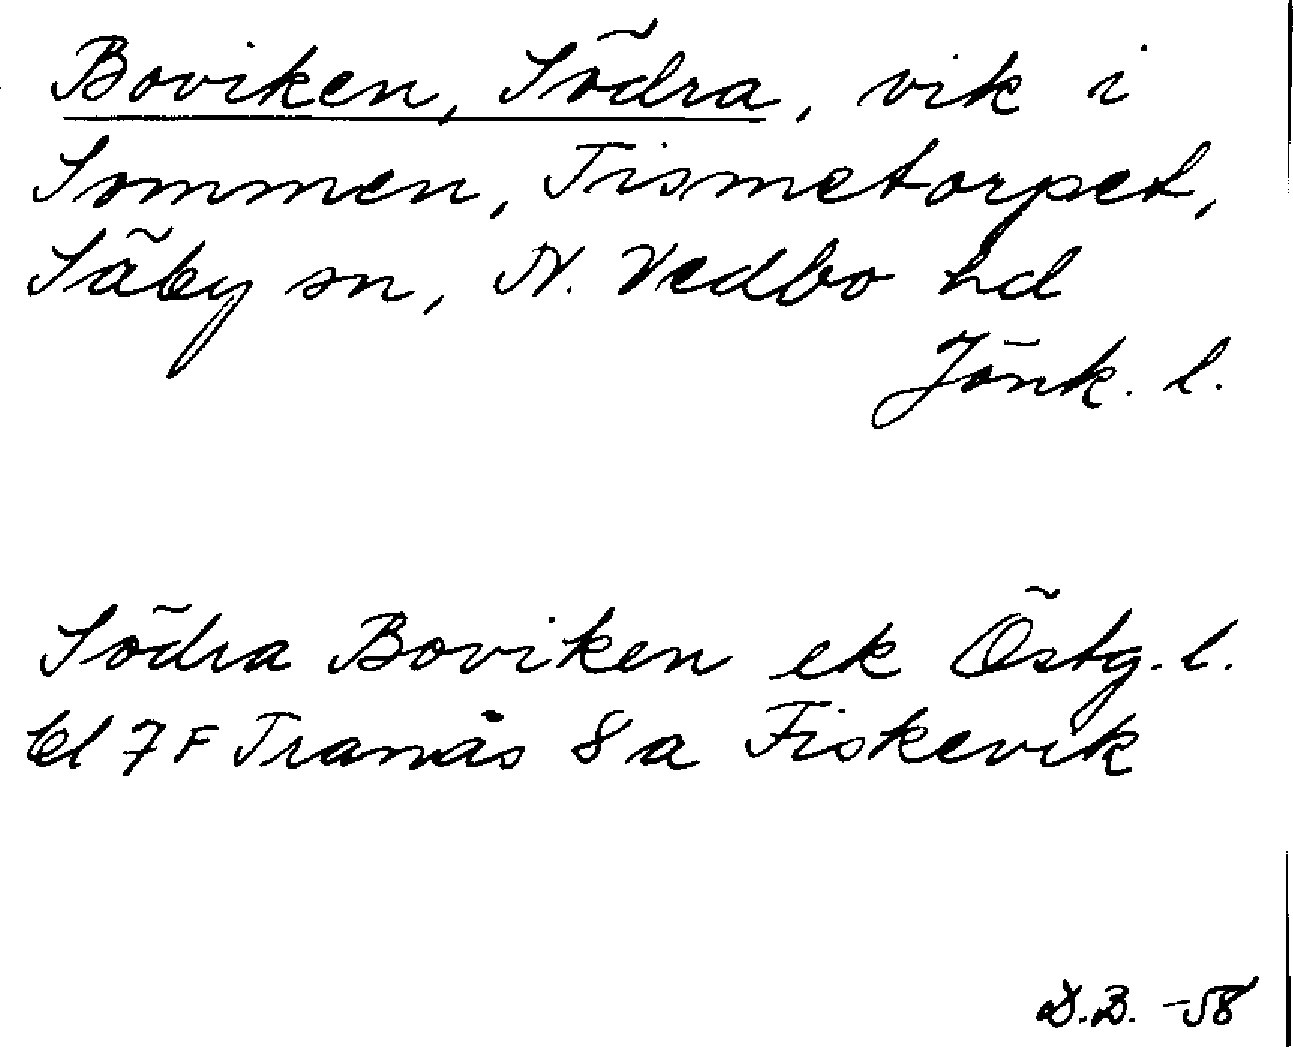 Boviken, Södra, vik i
Sommen, Tismetorpet,
Säby sn, N. Vedbo hd
Jönk. l.
Södra Boviken ek Östg. l.
bl 7F Tranås 8a Fiskevik
D.B. -58